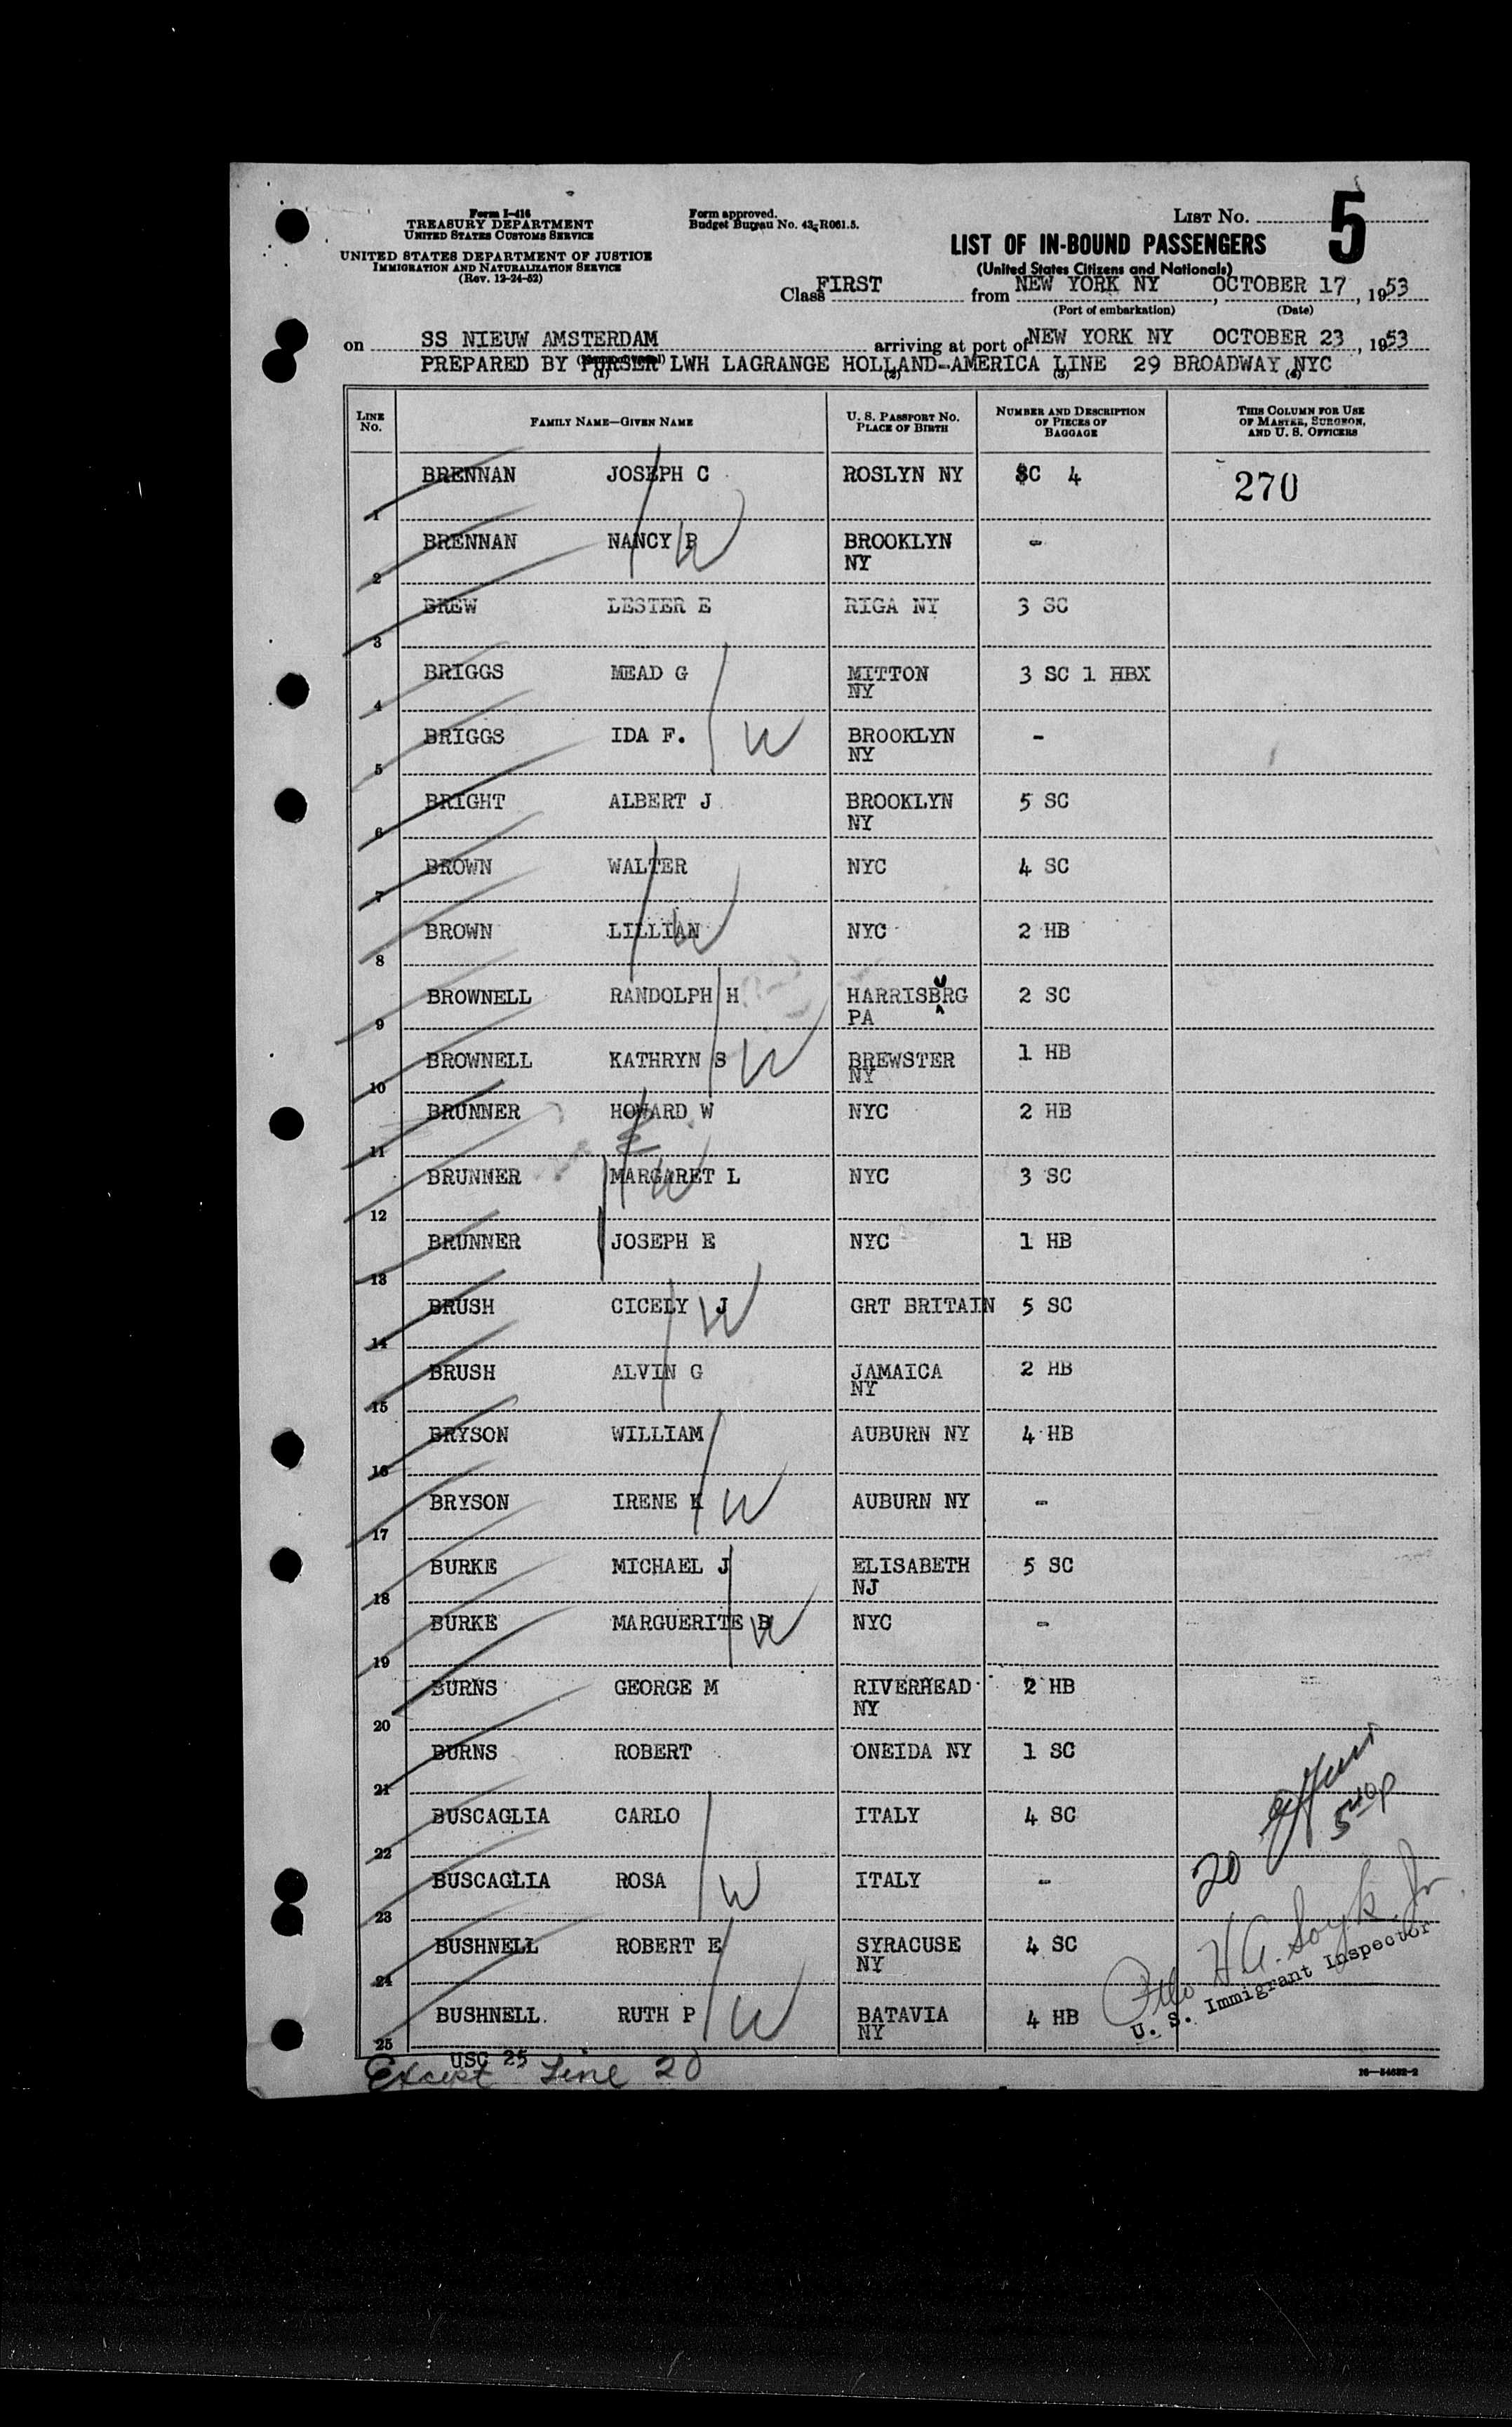 Form I-416
TREASURY DEPARTMENT
UNITED STATES CUSTOMS SERVICE
UNITED STATES DEPARTMENT OF JUSTICE
IMMIGRATION AND NATURALIZATION SERVICE
(Rev. 12-24-52)
Form approved.
Budget Bureau No. 43-R061.5.
LIST NO. 5
LIST OF IN-BOUND PASSENGERS
(United States Citizens and Nationals)
Class FIRST from NEW YORK NY, OCTOBER 17, 1953
(Port of embarkation) (Date)
on SS NIEUW AMSTERDAM arriving at port of NEW YORK NY OCTOBER 23, 1953
PREPARED BY PURSER LWH LAGRANGE HOLLAND-AMERICA LINE 29 BROADWAY NYC
(1) (2) (3) (4)
LINE NO. FAMILY NAME—GIVEN NAME U. S. PASSPORT NO. PLACE OF BIRTH NUMBER AND DESCRIPTION OF PIECES OF BAGGAGE THIS COLUMN FOR USE OF MASTER, SURGEON, AND U. S. OFFICERS
1 BRENNAN JOSEPH C ROSLYN NY SC 4 270
2 BRENNAN NANCY B W BROOKLYN NY -
3 BREW LESTER E RIGA NY 3 SC
4 BRIGGS MEAD G MITTON NY 3 SC 1 HBX
5 BRIGGS IDA F. W BROOKLYN NY -
6 BRIGHT ALBERT J BROOKLYN NY 5 SC
7 BROWN WALTER NYC 4 SC
8 BROWN LILLIAN W NYC 2 HB
9 BROWNELL RANDOLPH H HARRISBURG PA 2 SC
10 BROWNELL KATHRYN S W BREWSTER NY 1 HB
11 BRUNNER HOWARD W NYC 2 HB
12 BRUNNER MARGARET L W NYC 3 SC
13 BRUNNER JOSEPH E NYC 1 HB
14 BRUSH CICELY J W GRT BRITAIN 5 SC
15 BRUSH ALVIN G JAMAICA NY 2 HB
16 BRYSON WILLIAM AUBURN NY 4 HB
17 BRYSON IRENE K W AUBURN NY -
18 BURKE MICHAEL J ELISABETH NJ 5 SC
19 BURKE MARGUERITE B W NYC -
20 BURNS GEORGE M RIVERHEAD NY 2 HB
21 BURNS ROBERT ONEIDA NY 1 SC
22 BUSCAGLIA CARLO ITALY 4 SC
23 BUSCAGLIA ROSA W ITALY - 20
24 BUSHNELL ROBERT E SYRACUSE NY 4 SC
25 BUSHNELL. RUTH P W BATAVIA NY 4 HB
U. S. Immigrant Inspector
USC 25
Except Line 20
16—54632-2